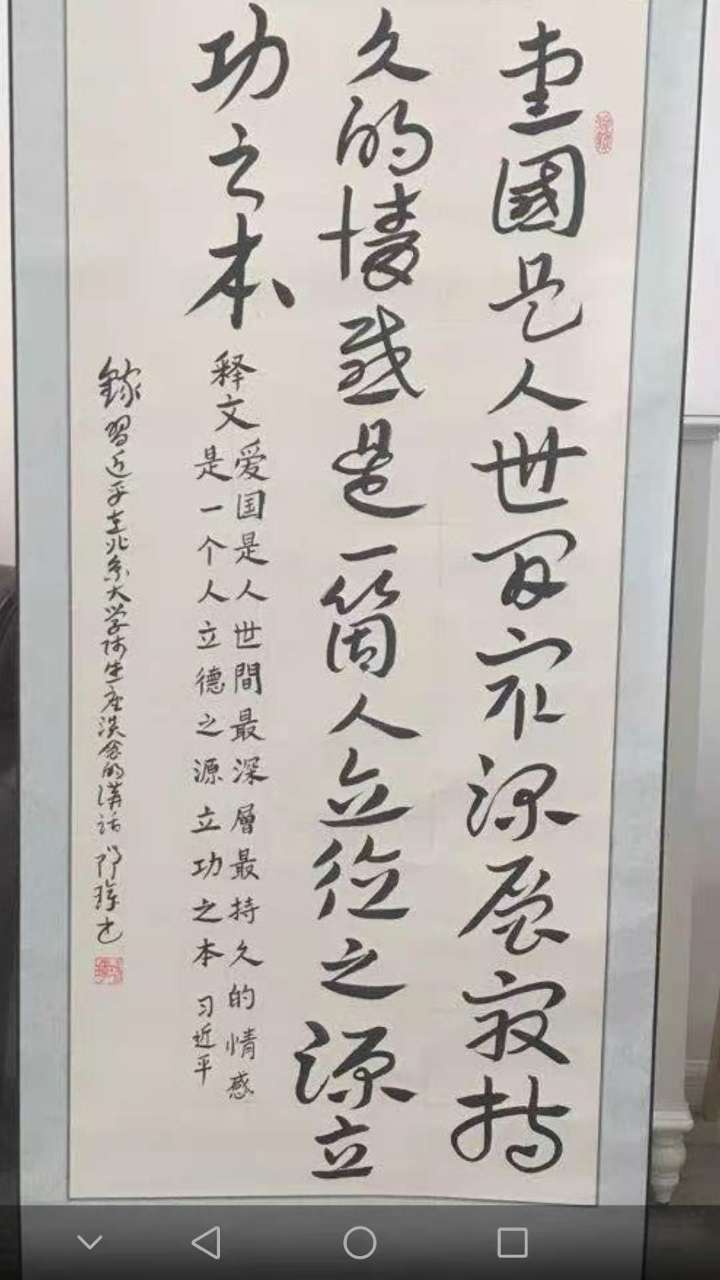 爱國是人世间最深层最持
久的情感是一箇人立德之源立
功之本
释文
爱国是人世間最深層最持久的情感
是一个人立德之源立功之本 习近平
錄習近平在北京大学师生座谈会的講話